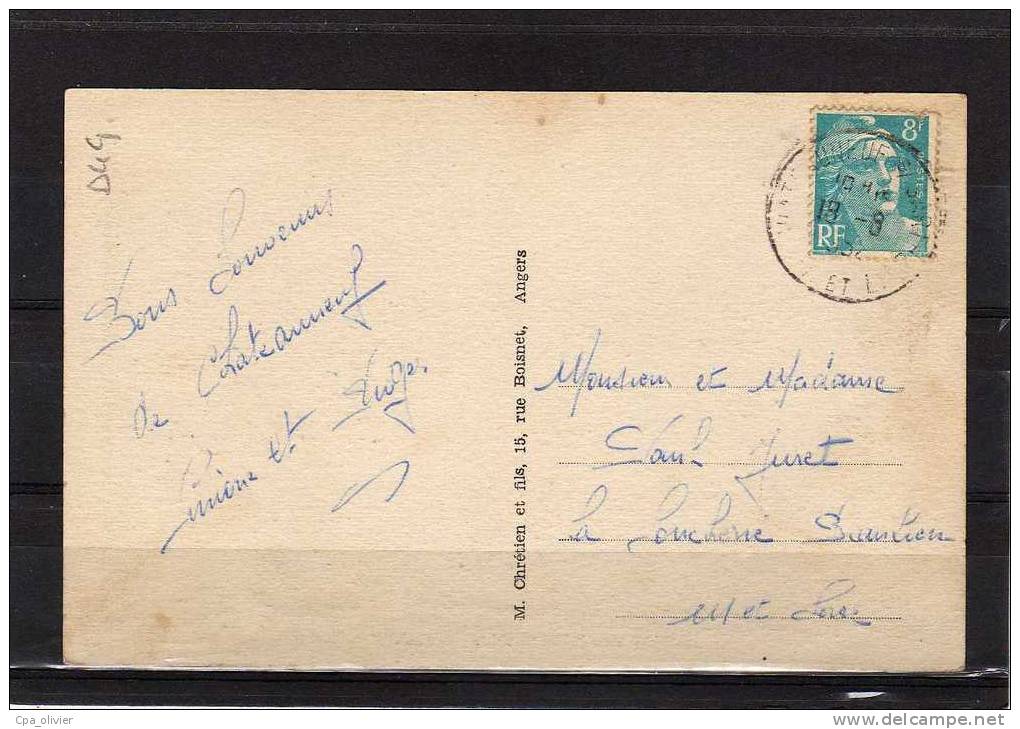 D49.
Bons Souvenirs
de Chateauneuf
et
M. Chrétien et fils, 15, rue Boisnet, Angers
8F
POSTES
RF
18 -8
ET L
Monsieur et Madame
Paul Juret
la
M et Loire
Cpa_olivier
www.delcampe.net